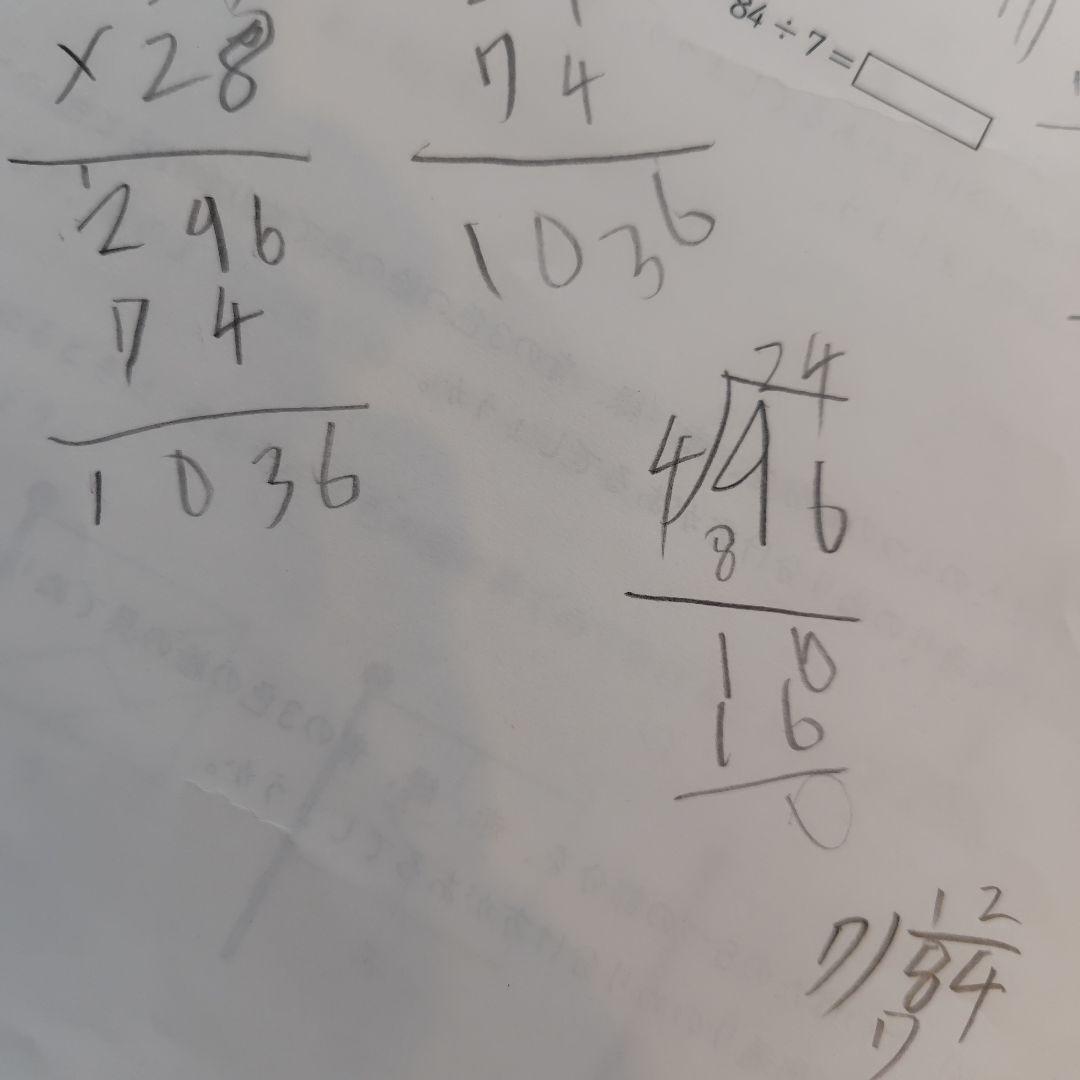 ×28
296
74
1036
74
1036
84÷7=
24
4)96
8
10
16
0
12
7)84
7